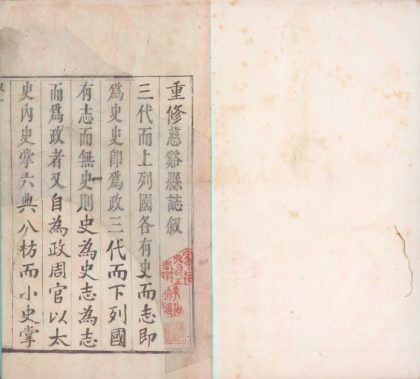 重修慈谿縣誌叙
三代而上列國各有史而志即
為史史即為政三代而下列國
有志而無史則史為史志為志
而為政者又自為政周官以太
史內史掌六典八枋而小史掌